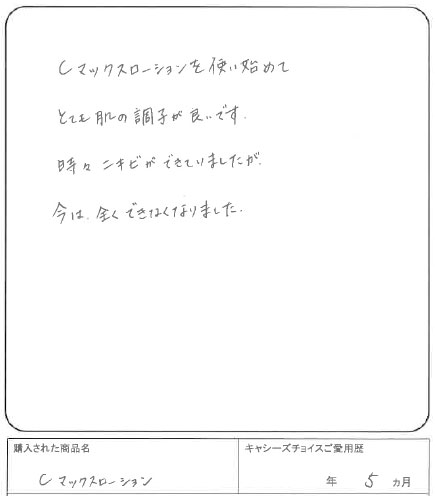 Cマックスローションを使い始めて
とても肌の調子が良いです.
時々ニキビができていましたが.
今は.全くできなくなりました.
購入された商品名
キャシーズチョイスご愛用歴
Cマックスローション
年 5 ヵ月